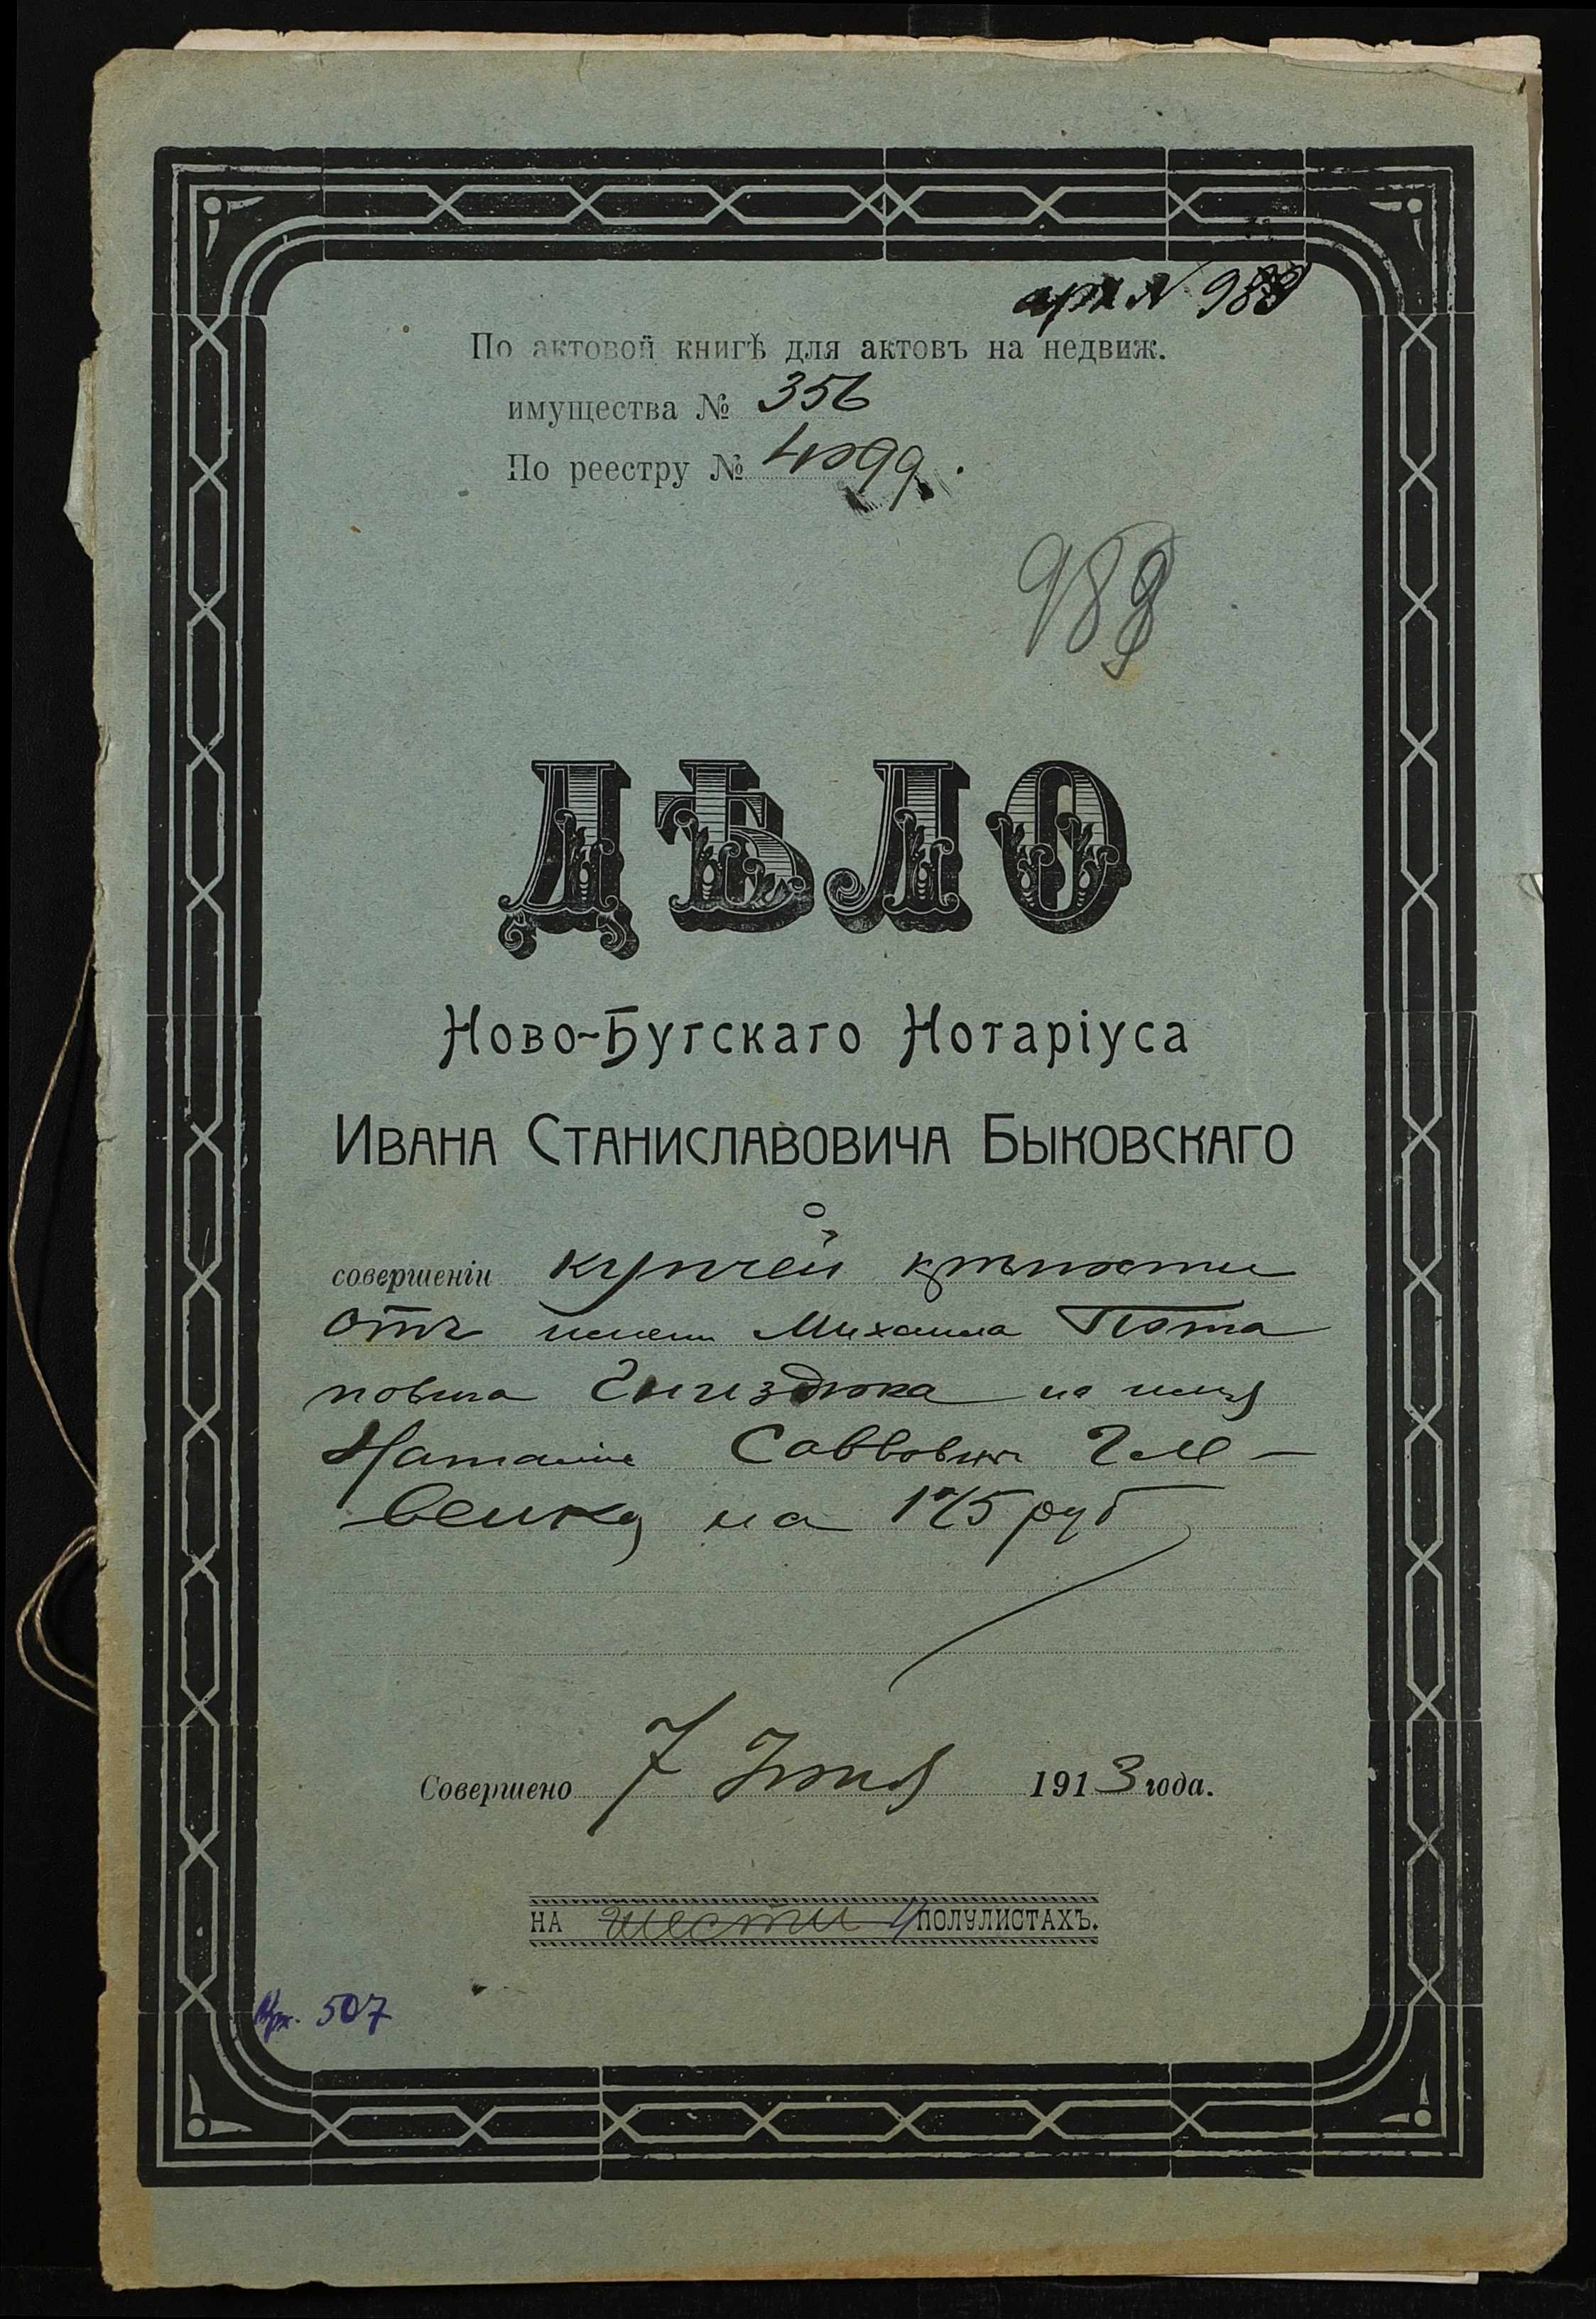 арх № 989
По актовой книгѣ для актовъ на недвиж.
имущества № 356
По реестру № 4099.
989
ДѢЛО
Ново-Бугскаго Нотаріуса
Ивана Станиславовича Быковскаго
о
совершеніи купчей крѣпости
отъ имени Михаила Пота
повича на имя
Наталіи Саввовны
на 175 руб
Совершено 7 1913 года.
на шести 4 полулистахъ.
Арх. 507